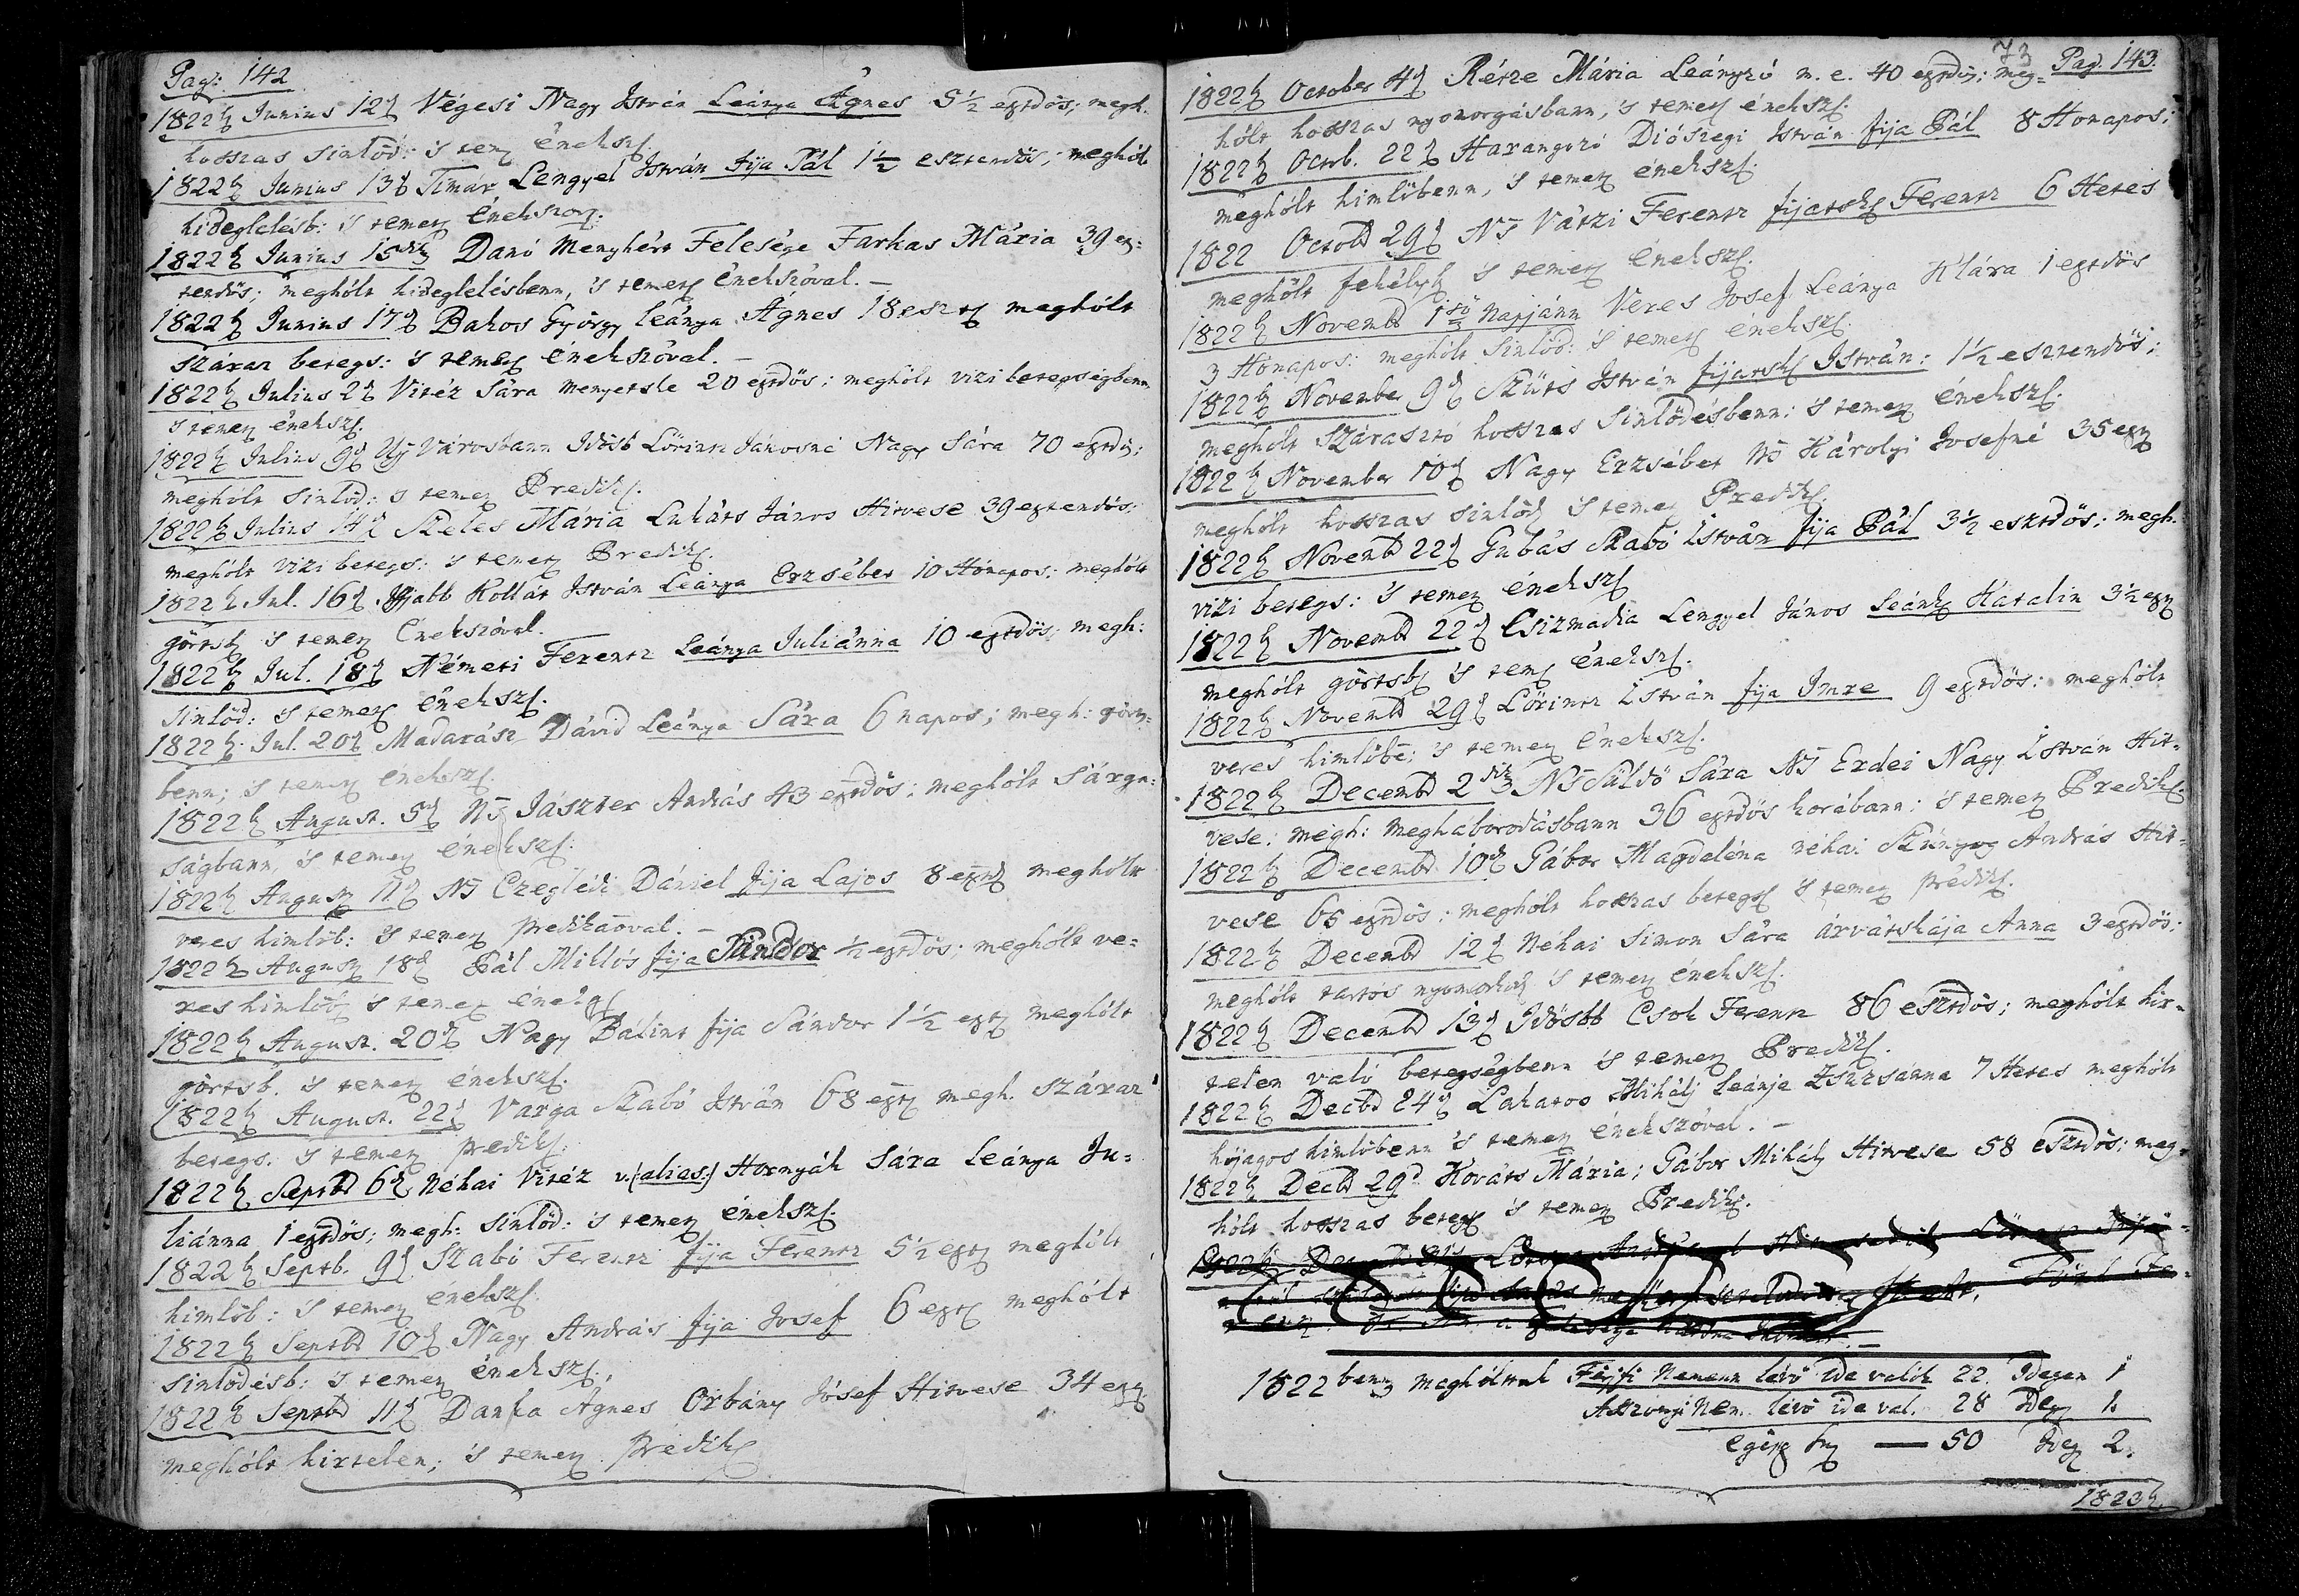 Pag: 142
1822b Junius 12d Végesi Nagy István Leánya Ágnes 5½ eztdös; megh.
hosszas sinlőd: 's tem Énekszó.
1822b Junius 13d Timár Lengyel István fija Pál 1½ esztendős, meghólt
hideglelésb: 's temet Énekszov.
1822b Junius 15dik Danó Menyhért Felesége Farkas Mária 39 esz=
tendős; meghólt hideglelésbenn, 's temet Énekszóval. —
1822b Junius 17d Bakos György leánya Ágnes 18 eszt meghólt
száraz betegs: 's temet énekszóval. —
1822b Julius 2d Vitéz Sára menyetske 20 eztdős; meghólt vizi betegségbenn
's temet énekszó.
1822b Julius 9d Uj Városbann Idősb Lőrintz Jánosné Nagy Sára 70 eztdős;
meghólt sinlőd: 's temet Predik.
1822b Julius 14d Szeles Mária Lukáts János Hitvese 39 eztendős:
meghólt vizi betegs: 's temet Predik.
1822b Jul. 16d Ifjabb Kollát István Leánya Erzsébet 10 Hónapos; meghólt
görtsb 's temet Énekszóval.
1822b Jul. 18d Németi Ferentz Leánya Juliánna 10 eztdős, megh:
sinlőd: 's temet énekszó.
1822b Jul. 20d Madarász Dávid Leánya Sára 6 napos; megh: görts=
benn; 's temet énekszó.
1822b August. 5d Ns Jászter András 43 eztdős; meghólt sárga=
ságbann, 's temet énekszó.
1822b August 11d Ns Czeglédi Dániel fija Lajos 8 eztd meghólt
veres himlőb: 's temet predikátzóval. —
1822b August 18d Pál Miklós fija Sándor ½ eztdős; meghólt ve=
res himlőb 's temet énekszó
1822b August. 20d Nagy Bálint fija Sándor 1½ ezt meghólt
görtsb. 's temet énekszó.
1822b August. 22d Varga Szabó István 68 ezt megh. száraz
betegs. 's temet predik.
1822b Septbr 6d Néhai Vitéz v. (alias:) Hornyák Sára Leánya Ju=
liánna 1 eztdős; megh: sinlőd: 's temet énekszó.
1822b Septb. 9d Szabó Ferentz fija Ferentz 5½ ezt meghólt
himlőb: 's temet énekszó.
1822b Septbr 10d Nagy András fija Josef 6 ezt meghólt
sinlodésb: 's temet énekszó.
1822b Septbr 11d Danka Ágnes Orbány Jósef Hitvese 34 ezt
meghólt hirtelen; 's temet predik
73 Pag. 143.
1822b October 4d Rétze Mária Leányzó m. e. 40 eztdős; meg=
hólt hosszas nyomorgásbann, 's temet énekszó.
1822b Octob. 22d Harangozó Diószegi István fija Pál 8 Hónapos;
meghólt himlőbenn, 's temet énekszó.
1822 Octobr 29d Ns Vátzi Ferentz fijatsk Ferentz 6 Hetes
meghólt fekély 's temet énekszó.
1822b Novembr 1ső Napjánn Veres Josef Leánya Klára 1 eztdős
3 Hónapos: meghólt sinlőd: 's temet énekszó.
1822b November 9d Szűts István fijatsk István: 1½ esztendős;
meghólt szárasztó hosszas sinlődésbenn: 's temet énekszó.
1822b November 10d Nagy Erzsébet Ns Károlyi Josefné 35 ezt
meghólt hosszas sinlőd 's temet Predik.
1822b Novembr 22d Gubás Szabó István fija Pál 3½ esztdős; megh.
vizi betegs: 's temet énekszó
1822b Novembr 22d Csizmadia Lengyel János Leánk Katalin 3½ ezt
meghólt görtsb 's tem énekszó.
1822b Novembr 29d Lőrintz István fija Imre 9 eztdős: meghólt
veres himlőbe; 's temet énekszó.
1822b Decembr 2dik Ns Süldö Sára Ns Erdei Nagy István Hit=
vese: megh: megháborodásbann 36 eztdős korábann: 's temet Predik.
1822b Decembr 10d Gábor Magdaléna néhai Szúnyog András Hit=
vese 65 eztdős; meghólt hosszas beteg 's temet prédik.
1822b Decembr 12d Néhai Simon Sára árvátskája Anna 3 eztdős;
meghólt tartós nyomorúság 's temet énekszó.
1822b Decembr 13d Idősbb Csok Ferentz 86 esztdős; meghólt hir=
telen való betegségbenn 's temet Predik.
1822b Decbr 24d Lakatos Mihály Leánja Zsuzsánna 7 Hetes meghólt
hójagos himlőbenn 's temet énekszóval. —
1822b Decbr 29d Kováts Mária; Gábor Mihály Hitvese 58 esztdős; meg=
hólt hosszas beteg 's temet Predik.
1822benn meghóltnak Férjfi Nemenn lévő ide valók 22. Idegen 1
Asszonyi Nem. lévő ide val. 28 Ideg 1.
Egész Sum — 50 Ideg 2.
1823b.